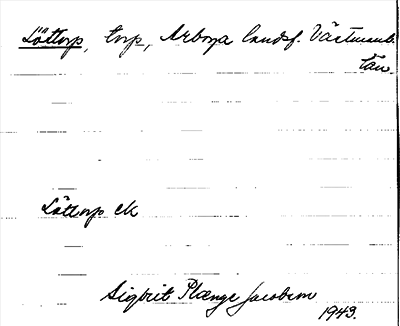 Löttorp, torp, Arboga landsf. Västmanl.
län.
Löttorp ek
Sigbrit Plænge Jacobson
1943.